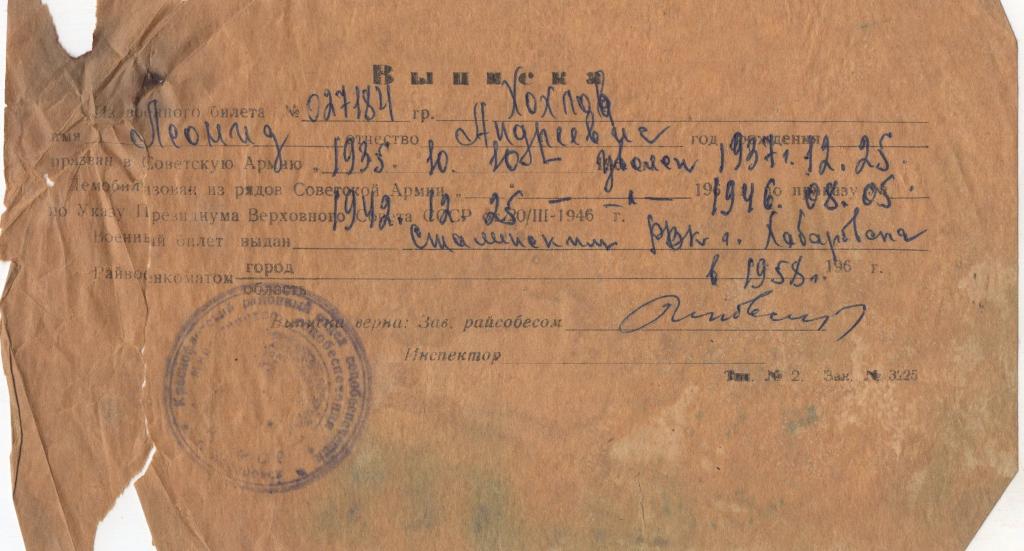 Выписка
Из военного билета № 027184 гр. Хохлов
имя Леонид отчество Андреевич год рождения
призван в Советскую Армию 1935. 10. 10 – уволен 1937 г. 12. 25.
Демобилизован из рядов Советской Армии 196 по приказу
1942. 12. 25 — " — 1946. 08. 05
по Указу Президиума Верховного Совета СССР 20/III-1946 г.
Военный билет выдан Сталинским РВК г. Хабаровска
Райвоенкоматом город 196 г.
в 1958 г.
область
Выписка верна: Зав. райсобесом
Инспектор
Тип. № 2. Зак. № 3225